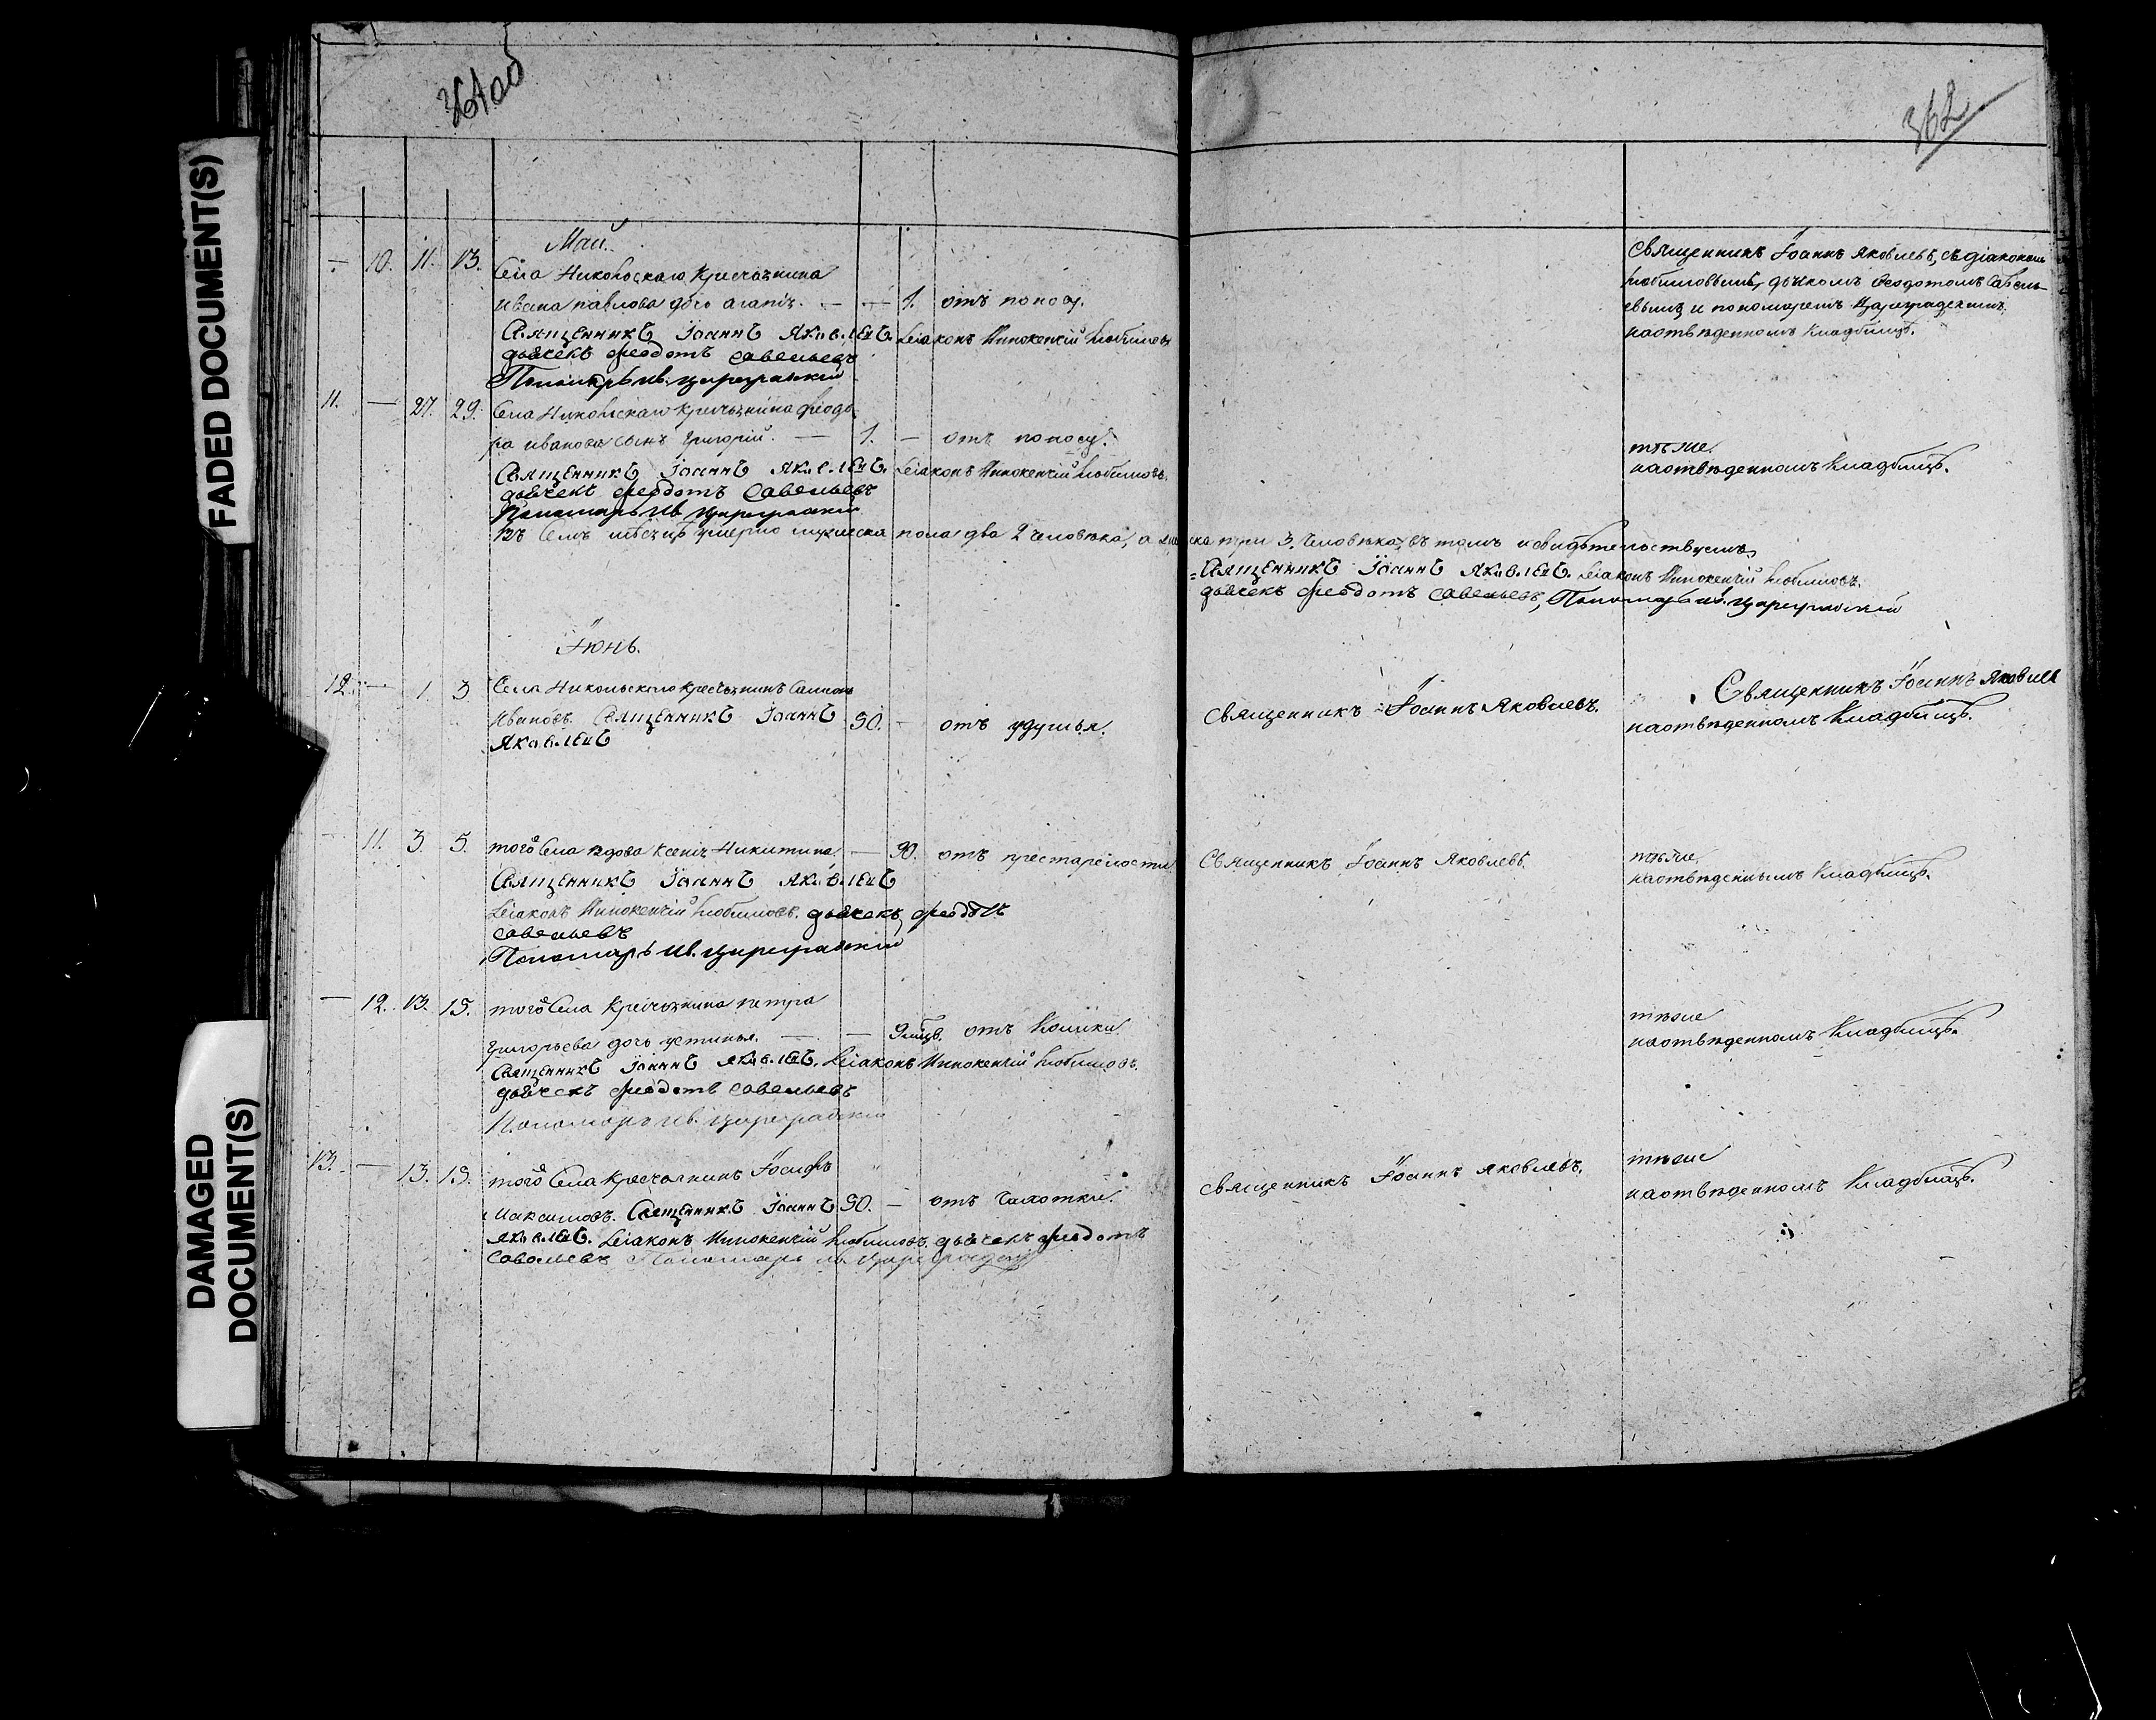 FADED DOCUMENT(S)
DAMAGED
DOCUMENT(S)
361 об
362
Май.
— 10. 11. 13. Села Никольскаго крестьянина
Ивана Павлова дочь — — 1. отъ поносу.
Священникъ Іоаннъ Яковлевъ. Діаконъ Иннокентій Любимовъ
дьячекъ Феодотъ Савельевъ
Пономарь Ив. Цареградскій
Священникъ Іоаннъ Яковлевъ, съ діакономъ
Любимовымъ, дьчкомъ Феодотомъ Савель-
евымъ и пономаремъ Цареградскимъ.
наотвѣденномъ кладбищѣ.
11. — 27. 29. Села Никольскаго крестьянина Феодо
ра Иванова сынъ Григорій. — 1. — отъ поносу.
Священникъ Іоаннъ Яковлевъ. Діаконъ Иннокентій Любимовъ.
дьячекъ Феодотъ Савельевъ
Пономарь Ив Цареградскій
тѣже
наотвѣденномъ кладбищѣ.
Въ семъ мѣсяцѣ умерло мужеска пола два 2 человѣка, а женска три 3. человѣка, въ томъ и свидѣтельствуемъ
Священникъ Іоаннъ Яковлевъ. Діаконъ Иннокентій Любимовъ.
дьячекъ Феодотъ Савельевъ, Пономарь Ив. Цареградскій
Іюнь.
12. — 1. 3 Села Никольскаго крестьянинъ
Ивановъ. Священникъ Іоаннъ 90. — отъ удушья.
Яковлевъ
Священникъ Іоаннъ Яковлевъ.
Священникъ Іоаннъ Яковлев
наотвѣденномъ кладбищѣ.
— 11. 3. 5. того села вдова Ксенія Никитина — 90. отъ престарѣлости
Священникъ Іоаннъ Яковлевъ
Діаконъ Иннокентій Любимовъ. дьячекъ, Феодотъ
Савельевъ
Пономарь Ив. Цареградскій
Священникъ Іоаннъ Яковлевъ.
тѣже.
наотвѣденнымъ кладбищѣ.
— 12. 13. 15. того села крестьянина Петра
Григорьева дочь Устинья. — — 9 мцв. отъ колики
Священникъ Іоаннъ Яковлевъ. Діаконъ Иннокентій Любимовъ.
дьячекъ Феодотъ Савельевъ
Пономарь Ив. Цареградскій
тѣже
наотвѣденномъ кладбищѣ.
13. — 13. 15. того села крестьянинъ Іосифъ
Максимовъ. Священникъ Іоаннъ 90. — отъ чахотки.
Яковлевъ. Діаконъ Иннокентій Любимовъ. дьячекъ Феодотъ
Савельевъ Пономарь Ив Цареградскій
Священникъ Іоаннъ Яковлевъ.
тѣже
наотвѣденномъ кладбищѣ.